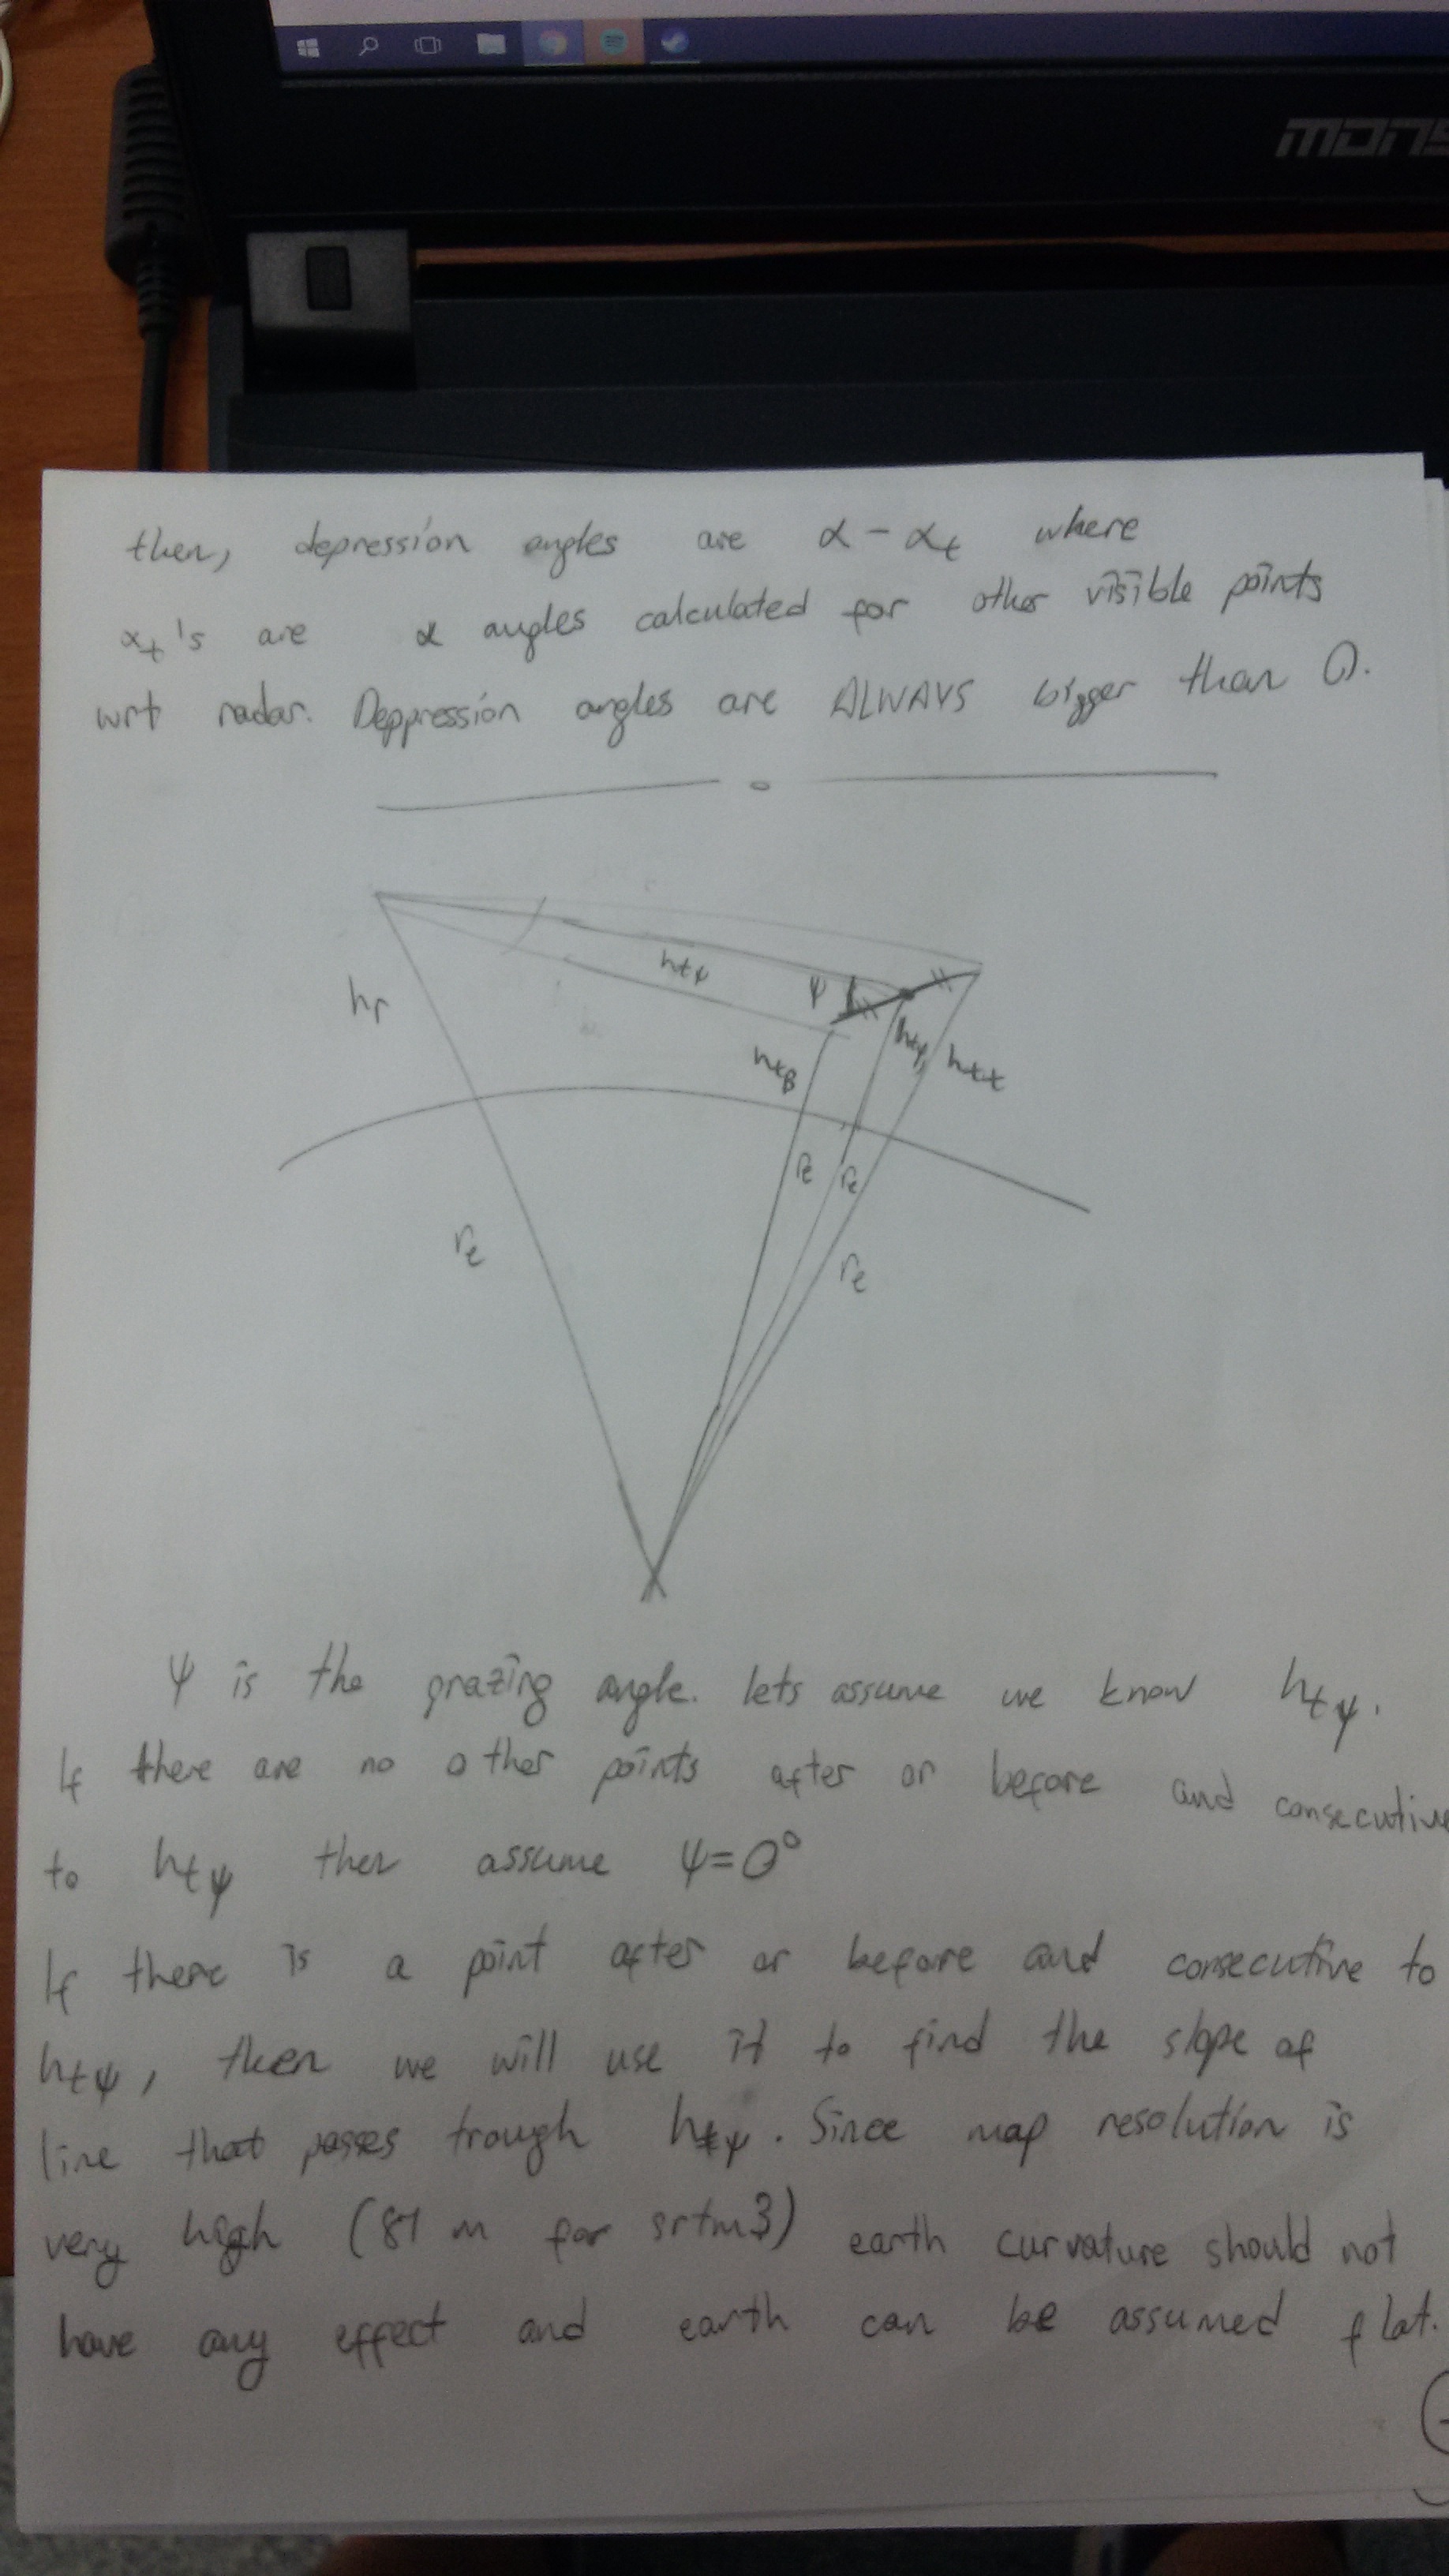 mons
then, depression angles are α - αt where
αt's are α angles calculated for other visible points
wrt radar. Deppression angles are ALWAYS bigger than 0.
hr
htψ
ψ
htβ
htψ
htt
re
re
re
re
ψ is the grazing angle. lets assume we know htψ.
If there are no other points after or before and consecutive
to htψ then assume ψ=0°
If there is a point after or before and consecutive to
htψ, then we will use it to find the slope of
line that passes trough htψ. Since map resolution is
very high (87 m for srtm3) earth curvature should not
have any effect and earth can be assumed flat.